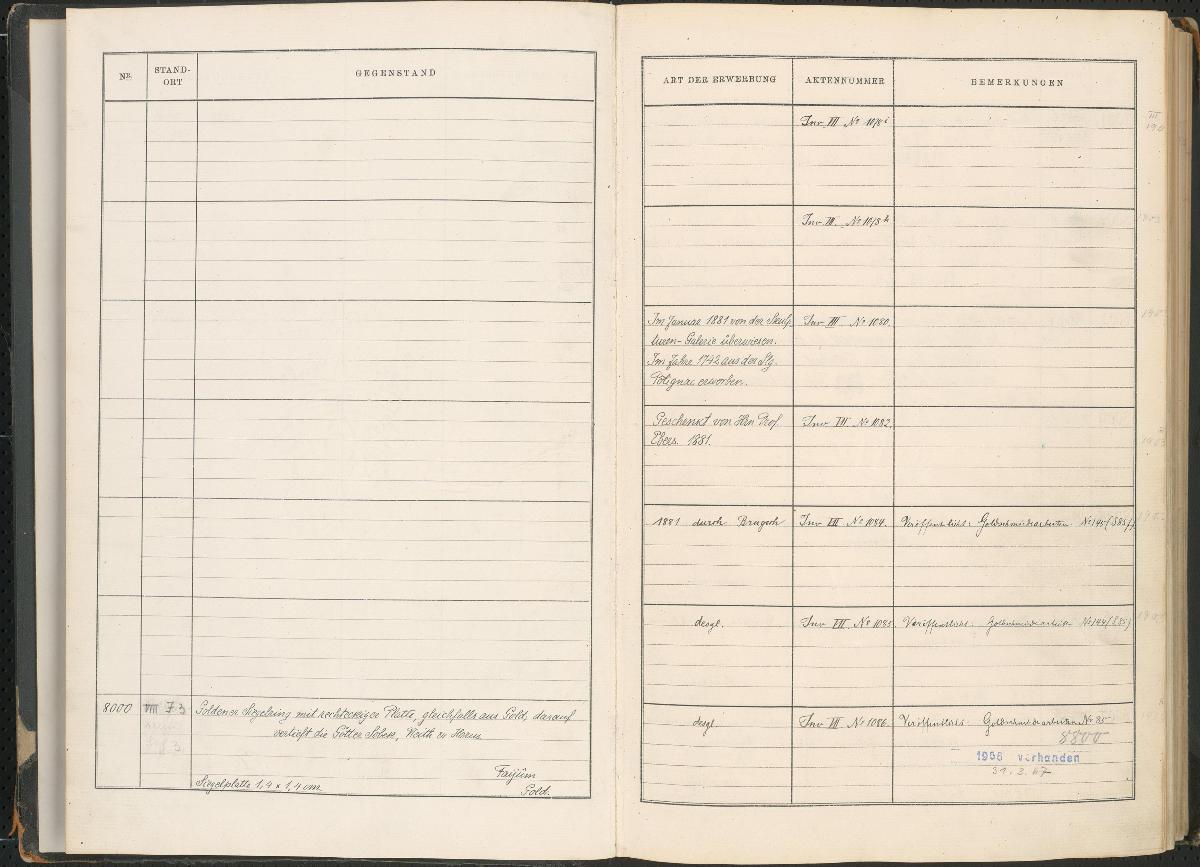 NR.
STAND-
ORT
GEGENSTAND
8000 VIII 73 Goldener Siegelring mit rechteckiger Platte, gleichfalls aus Gold, darauf
vertieft die Götter Sobek, Neith u Horus
Faijûm
Siegelplatte 1,4 x 1,4 cm
Gold.
ART DER ERWERBUNG
AKTENNUMMER
BEMERKUNGEN
Inv. VII No
Inv. VII. No
Im Januar 1881 von der Skulp
turen-Galerie überwiesen.
Im Jahre 1742 aus der Slg.
Polignac erworben.
Inv. VII No 1080.
Geschenkt von Hrn Prof.
Ebers. 1881.
Inv VII No 1082.
1881 durch Brugsch
Inv VII No 1084.
Veröffentlicht: Goldschmiedearbeiten No 145 (S 85)
desgl.
Inv VII. No 1085
Veröffentlicht: Goldschmiedearbeiten No 144 (S 85)
desgl.
Inv VII No 1086.
Veröffentlicht: Goldschmiedearbeiten No 85
8800
1966 vorhanden
31. 2. 67